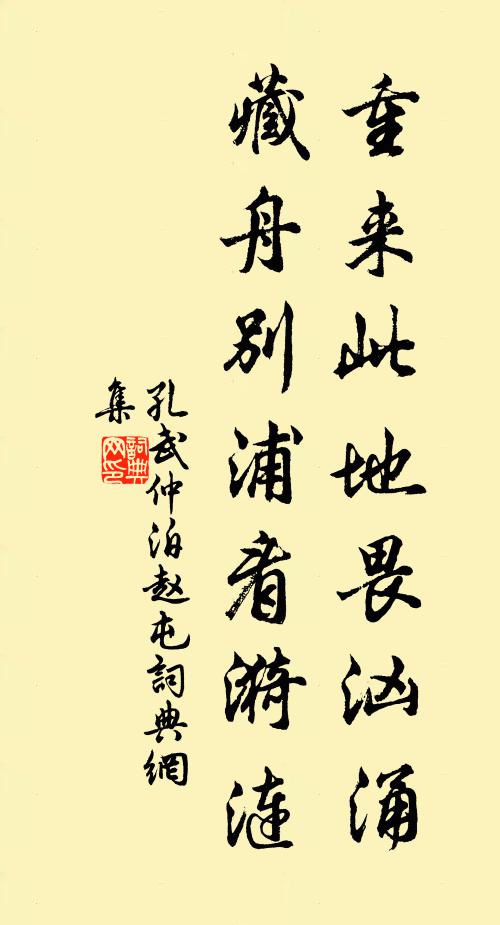 重来此地畏汹涌
藏舟别浦看漪涟
孔武仲泊赵屯詞典網
集
詞典网印